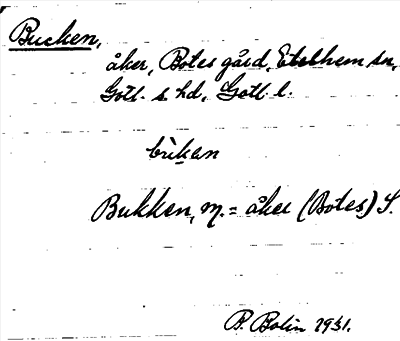 Bucken,
åker, Botes gård, Etelhem sn,
Gotl. s. hd, Gotl. l.
brikan
Bukken, m. = åker (Botes) S.
B. Bolin 1931.